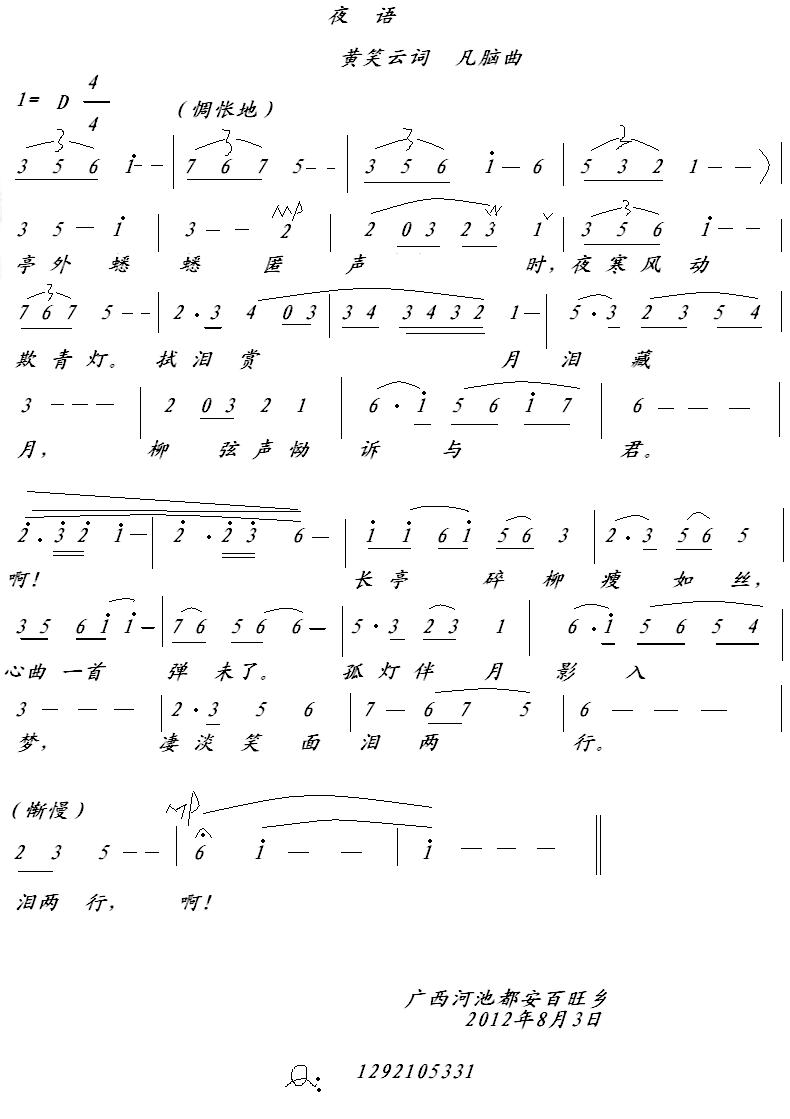 夜 语
黄笑云词 凡脑曲
1= D 4/4 （惆怅地）
3 5 6 i - - | 7 6 7 5 - - | 3 5 6 i — 6 | 5 3 2 1 — — 〉
3 5 — i | 3 — — 2 mp | 2 0 3 2 3 1 ∨ | 3 5 6 i — —
亭 外 蟋 蟋 匿 声 时，夜 寒 风 动
7 6 7 5 - - | 2 · 3 4 0 3 | 3 4 3 4 3 2 1 — | 5 · 3 2 3 5 4 |
欺 青 灯。 拭 泪 赏 月 泪 藏
3 — — — | 2 0 3 2 1 | 6 · i 5 6 i 7 | 6 — — — |
月， 柳 弦 声 恸 诉 与 君。
2 · 3 2 i — | 2 · 2 3 6 — | i i 6 i 5 6 3 | 2 · 3 5 6 5 |
啊！ 长 亭 碎 柳 瘦 如 丝，
3 5 6 i i — | 7 6 5 6 6 — | 5 · 3 2 3 1 | 6 · i 5 6 5 4 |
心曲 一首 弹 未了。 孤 灯 伴 月 影 入
3 — — — | 2 · 3 5 6 | 7 — 6 7 5 | 6 — — — |
梦， 凄 淡 笑 面 泪 两 行。
（慚慢） mp
2 3 5 - - | 6 i — — | i — — — ‖
泪两 行， 啊！
广西河池都安百旺乡
2012年8月3日
Q： 1292105331